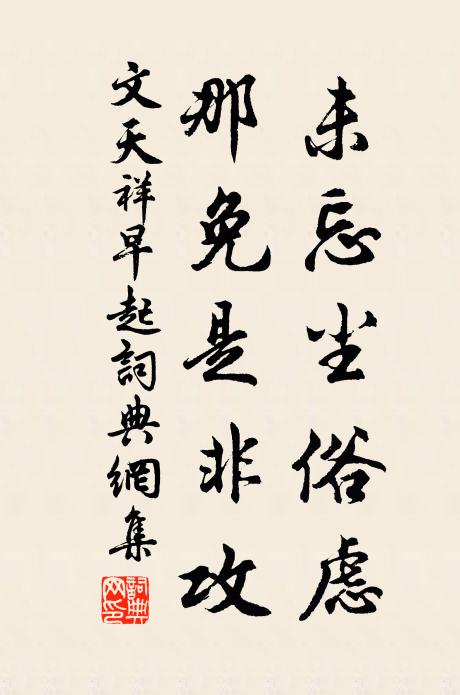 未忘尘俗虑
那免是非攻
文天祥早起詞典網集
詞典网印